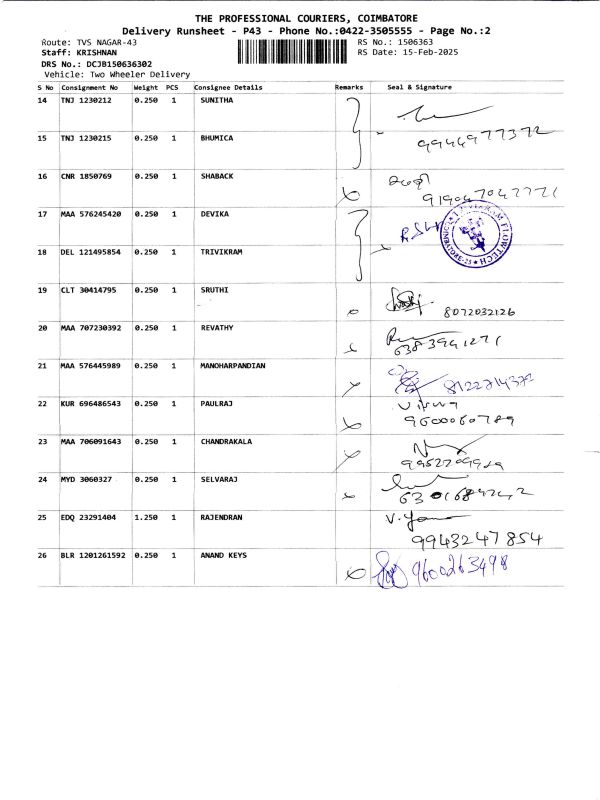 THE PROFESSIONAL COURIERS, COIMBATORE
Delivery Runsheet - P43 - Phone No.:0422-3505555 - Page No.:2
Route: TVS NAGAR-43 RS No.: 1506363
Staff: KRISHNAN RS Date: 15-Feb-2025
DRS No.: DCJB150636302
Vehicle: Two Wheeler Delivery
S No Consignment No Weight PCS Consignee Details Remarks Seal & Signature
14 TNJ 1230212 0.250 1 SUNITHA
15 TNJ 1230215 0.250 1 BHUMICA
9944977372
16 CNR 1850769 0.250 1 SHABACK
17 MAA 576245420 0.250 1 DEVIKA
18 DEL 121495854 0.250 1 TRIVIKRAM
19 CLT 30414795 0.250 1 SRUTHI
8072032126
20 MAA 707230392 0.250 1 REVATHY
21 MAA 576445989 0.250 1 MANOHARPANDIAN
22 KUR 696486543 0.250 1 PAULRAJ
9600060789
23 MAA 706091643 0.250 1 CHANDRAKALA
24 MYD 3060327 0.250 1 SELVARAJ
25 EDQ 23291404 1.250 1 RAJENDRAN
9943247854
26 BLR 1201261592 0.250 1 ANAND KEYS
9600263498